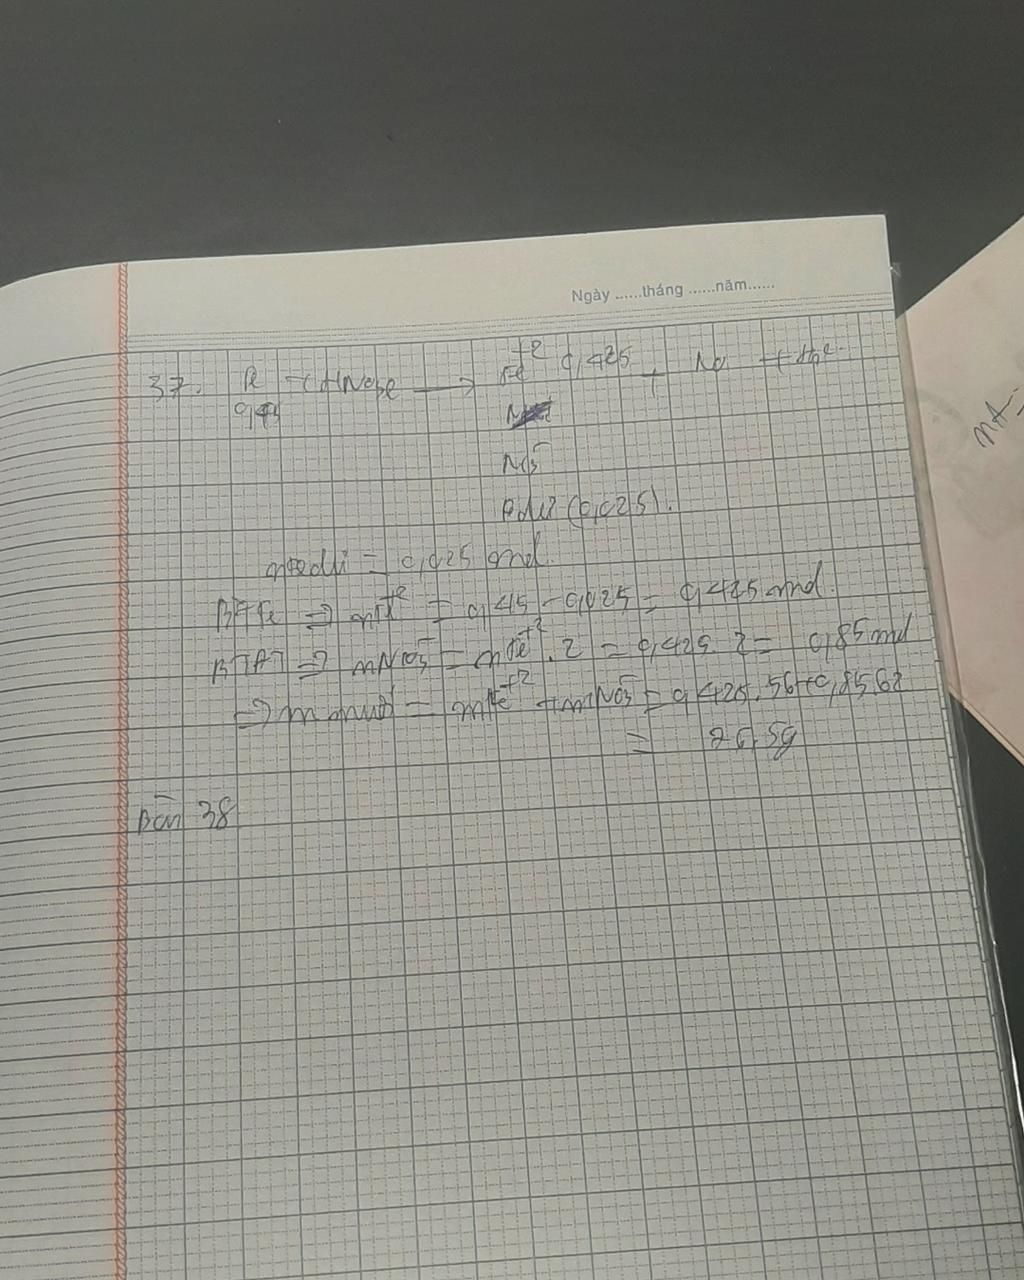 Ngày ......tháng ......năm......
37. Fe + HNO3 → Fe+2 0,425 + NO + H2O
0,45
NO3-
Fe dư (0,025).
nFe dư = 0,025 mol.
BTFe ⇒ nFe+2 = 0,45 - 0,025 = 0,425 mol.
BTĐT ⇒ nNO3- = nFe+2 . 2 = 0,425. 2 = 0,85 mol
⇒ m muối = mFe+2 + mNO3- = 0,425.56+0,85 62
= 76,5g
Bài 38
mA =